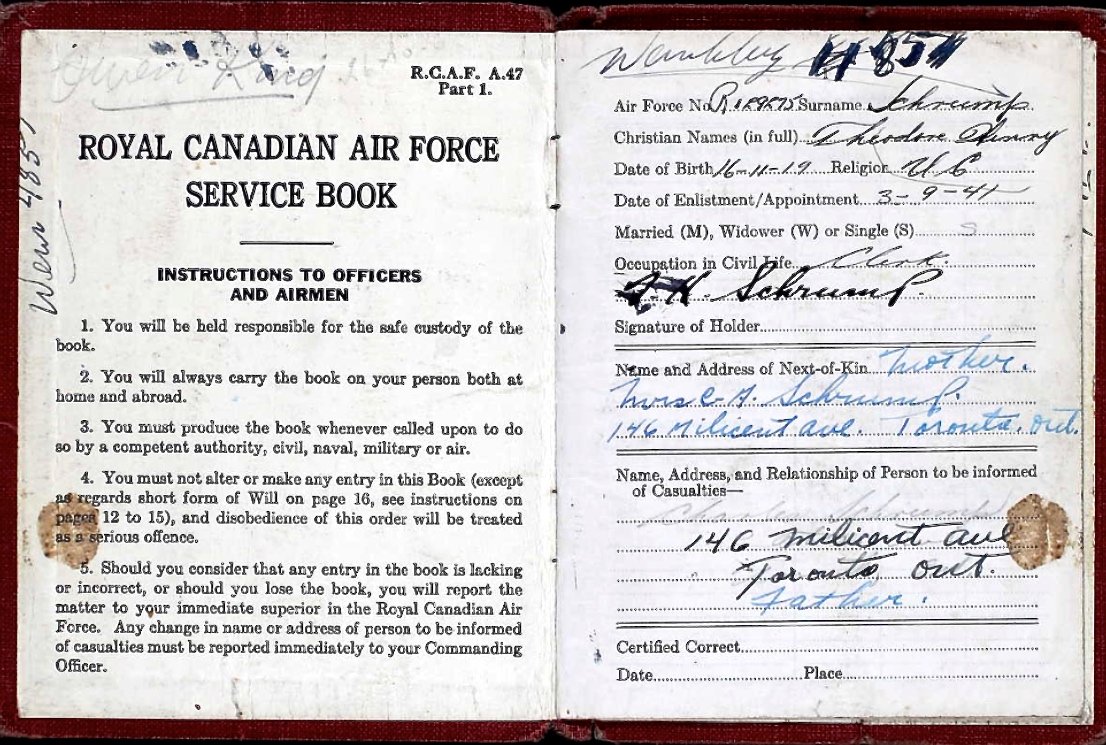 Owen King
R.C.A.F. A.47
Part 1.
ROYAL CANADIAN AIR FORCE
SERVICE BOOK
INSTRUCTIONS TO OFFICERS
AND AIRMEN
1. You will be held responsible for the safe custody of the
book.
2. You will always carry the book on your person both at
home and abroad.
3. You must produce the book whenever called upon to do
so by a competent authority, civil, naval, military or air.
4. You must not alter or make any entry in this Book (except
as regards short form of Will on page 16, see instructions on
pages 12 to 15), and disobedience of this order will be treated
as a serious offence.
5. Should you consider that any entry in the book is lacking
or incorrect, or should you lose the book, you will report the
matter to your immediate superior in the Royal Canadian Air
Force. Any change in name or address of person to be informed
of casualties must be reported immediately to your Commanding
Officer.
Wembley
Air Force No. Surname Schrump
Christian Names (in full) Theodore Henry
Date of Birth 16-11-19 Religion U C
Date of Enlistment/Appointment 3-9-41
Married (M), Widower (W) or Single (S) S
Occupation in Civil Life Clerk.
Schrump.
Signature of Holder
Name and Address of Next-of-Kin Mother.
Mrs C. Schrump.
146 Milicent ave. Toronto. Ont.
Name, Address, and Relationship of Person to be informed
of Casualties—
Charles Schrump
146 Milicent ave
Toronto Ont.
Father.
Certified Correct
Date Place